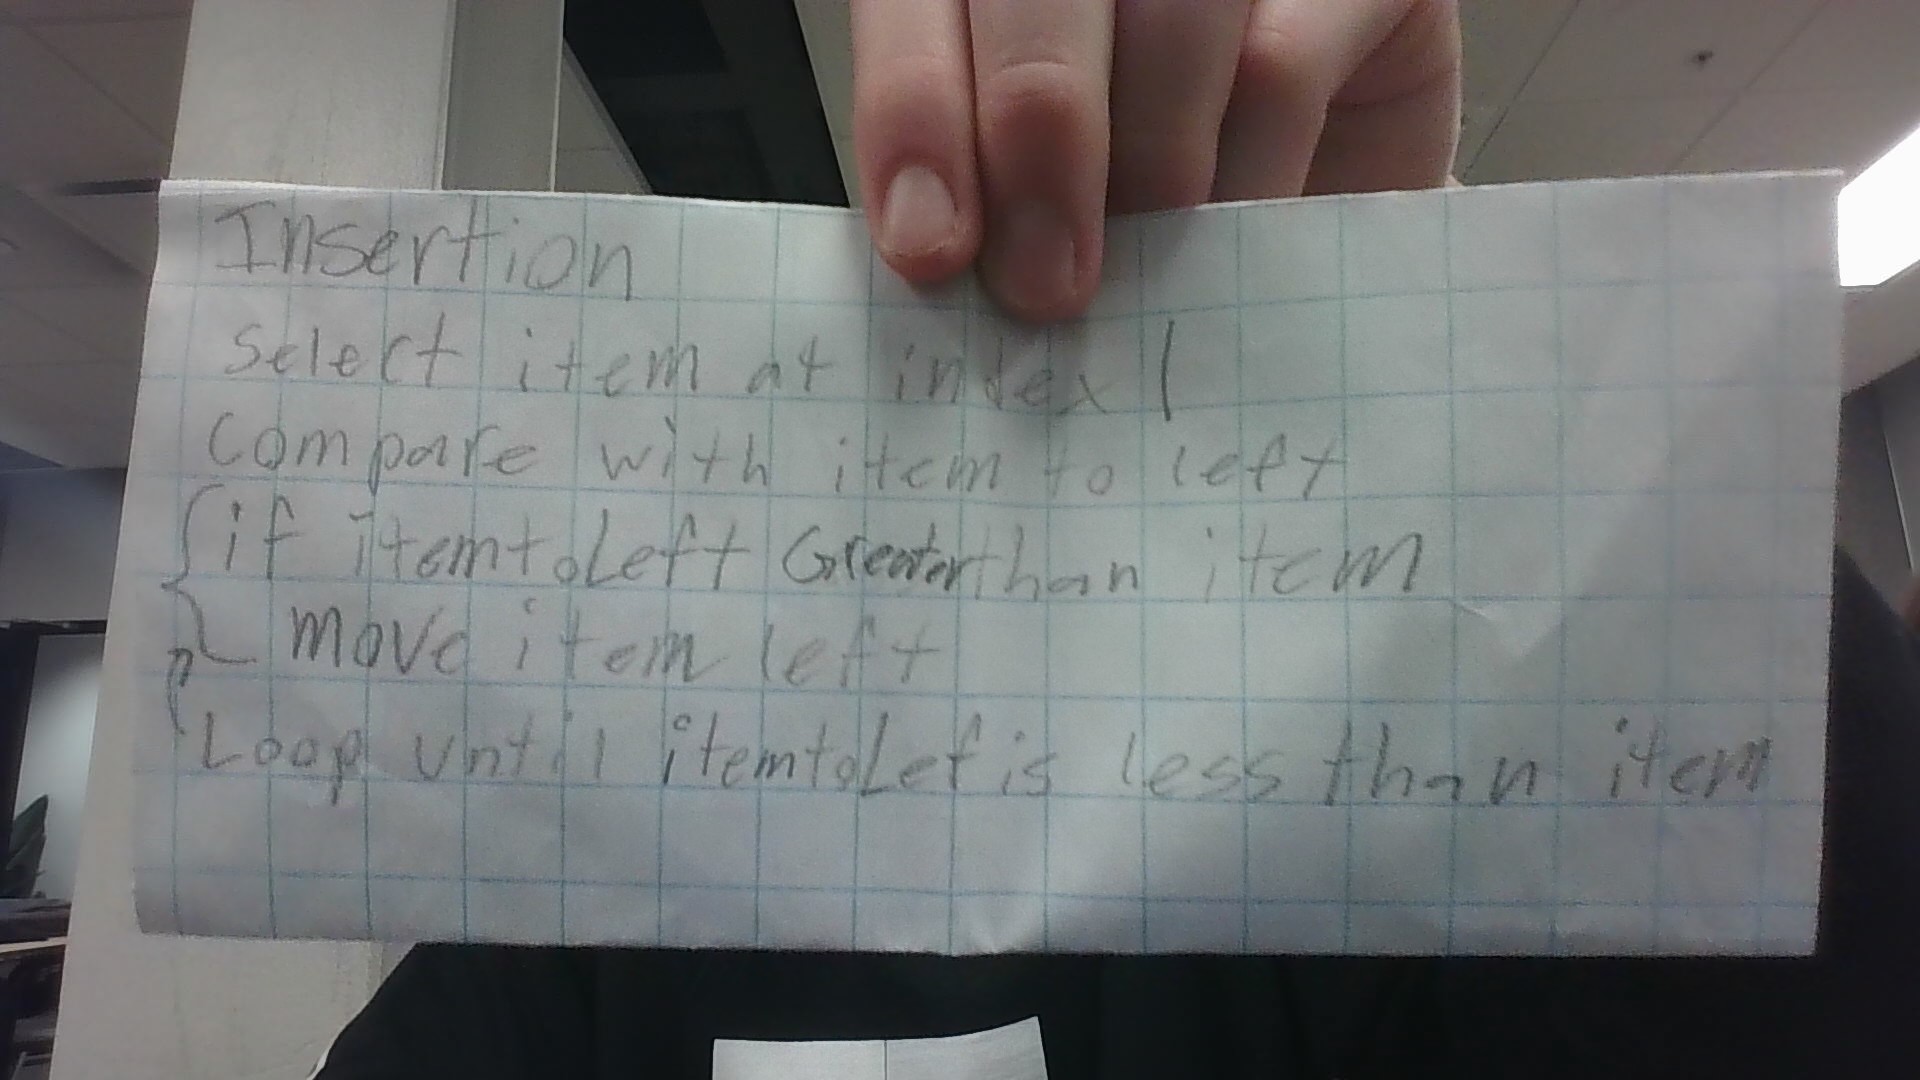 Insertion
Select item at index 1
Compare with item to left
if itemtoLeft Greaterthan item
move item left
Loop until itemtoLef is less than item